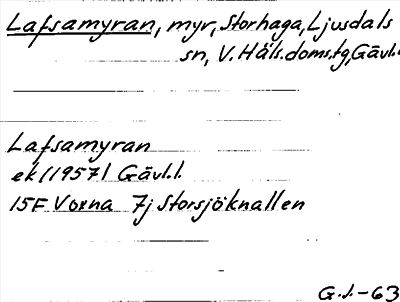 Lafsamyran, myr, Storhaga, Ljusdals
sn, V. Häls. doms. tg, Gävl.
Lafsamyran
ek (1957) Gävl.l.
15F Voxna 7j Storsjöknallen
G.J.-63